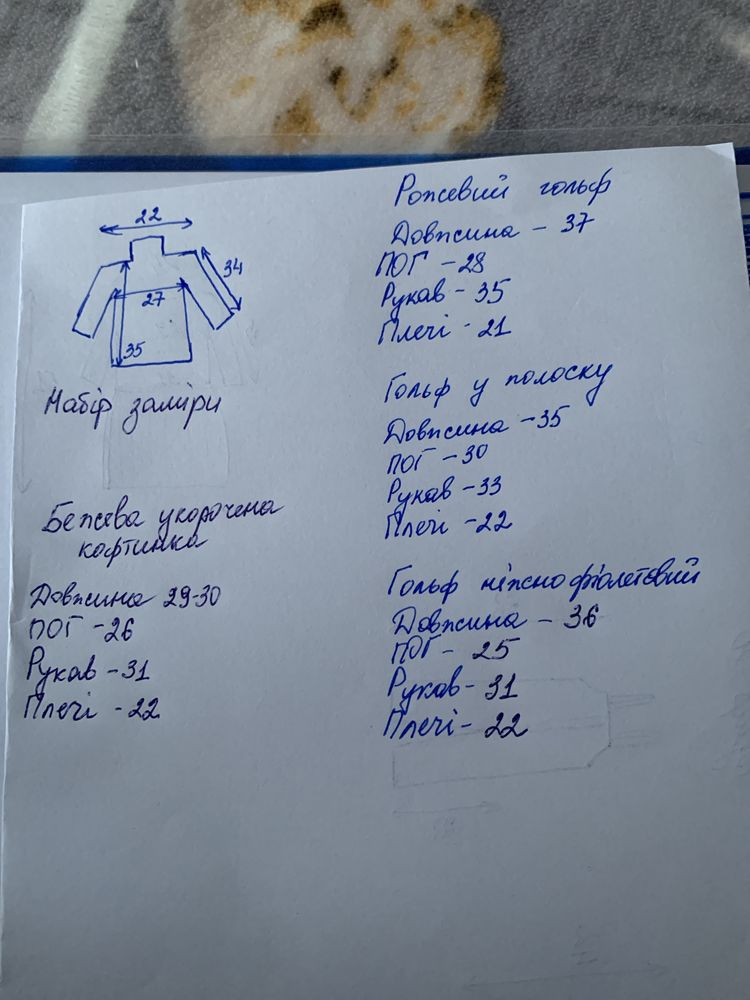 22
34
27
35
Набір заміри
Бежева укорочена
кофтинка
Довжина 29-30
ПОГ - 26
Рукав - 31
Плечі - 22
Рожевий гольф
Довжина - 37
ПОГ - 28
Рукав - 35
Плечі - 21
Гольф у полоску
Довжина - 35
ПОГ - 30
Рукав - 33
Плечі - 22
Гольф ніжно фіолетовий
Довжина - 36
ПОГ - 25
Рукав - 31
Плечі - 22